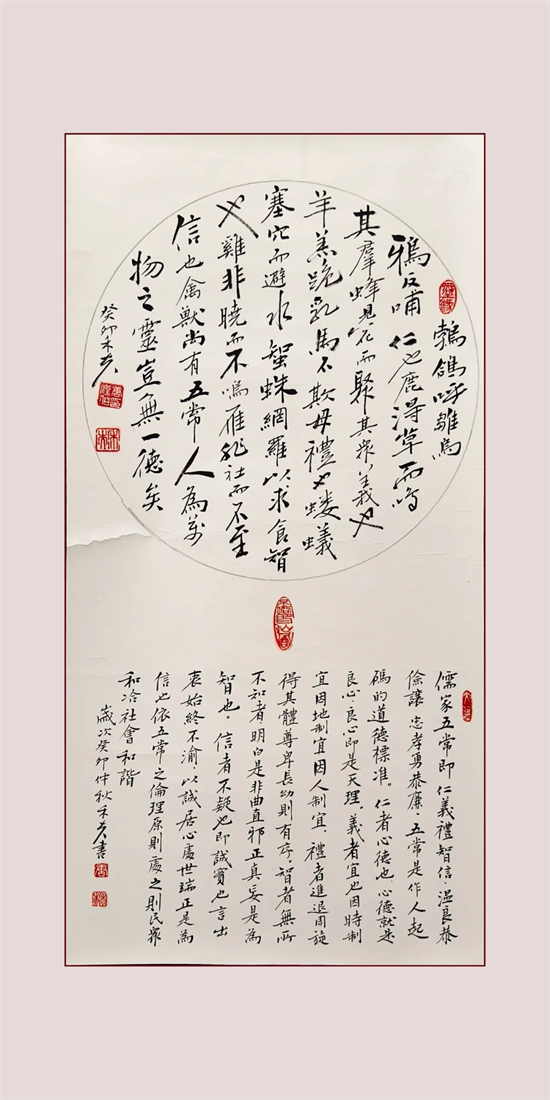 鵓鴿呼雛烏
鴉反哺仁也鹿得草而鳴
其羣蜂見花而聚其衆義也
羊羔跪乳馬不欺母禮也螻蟻
塞穴而避水智蛛網羅以求食智
也雞非曉而不鳴雁非社而不至
信也禽獸尚有五常人為萬
物之靈豈無一德矣
癸卯禾
儒家五常即仁義禮智信温良恭
儉讓忠孝勇恭廉五常是作人起
碼的道德標准仁者心德也心德就是
良心良心即是天理義者宜也因時制
宜因地制宜因人制宜禮者進退周旋
得其體尊卑長幼則有序智者無所
不知者明白是非曲直邪正真妄是為
智也信者不疑也即誠實也言出
衷始終不渝以誠居心處世端正是為
信也依五常之倫理原則處之則民衆
和洽社會和諧
歲次癸卯仲秋禾書